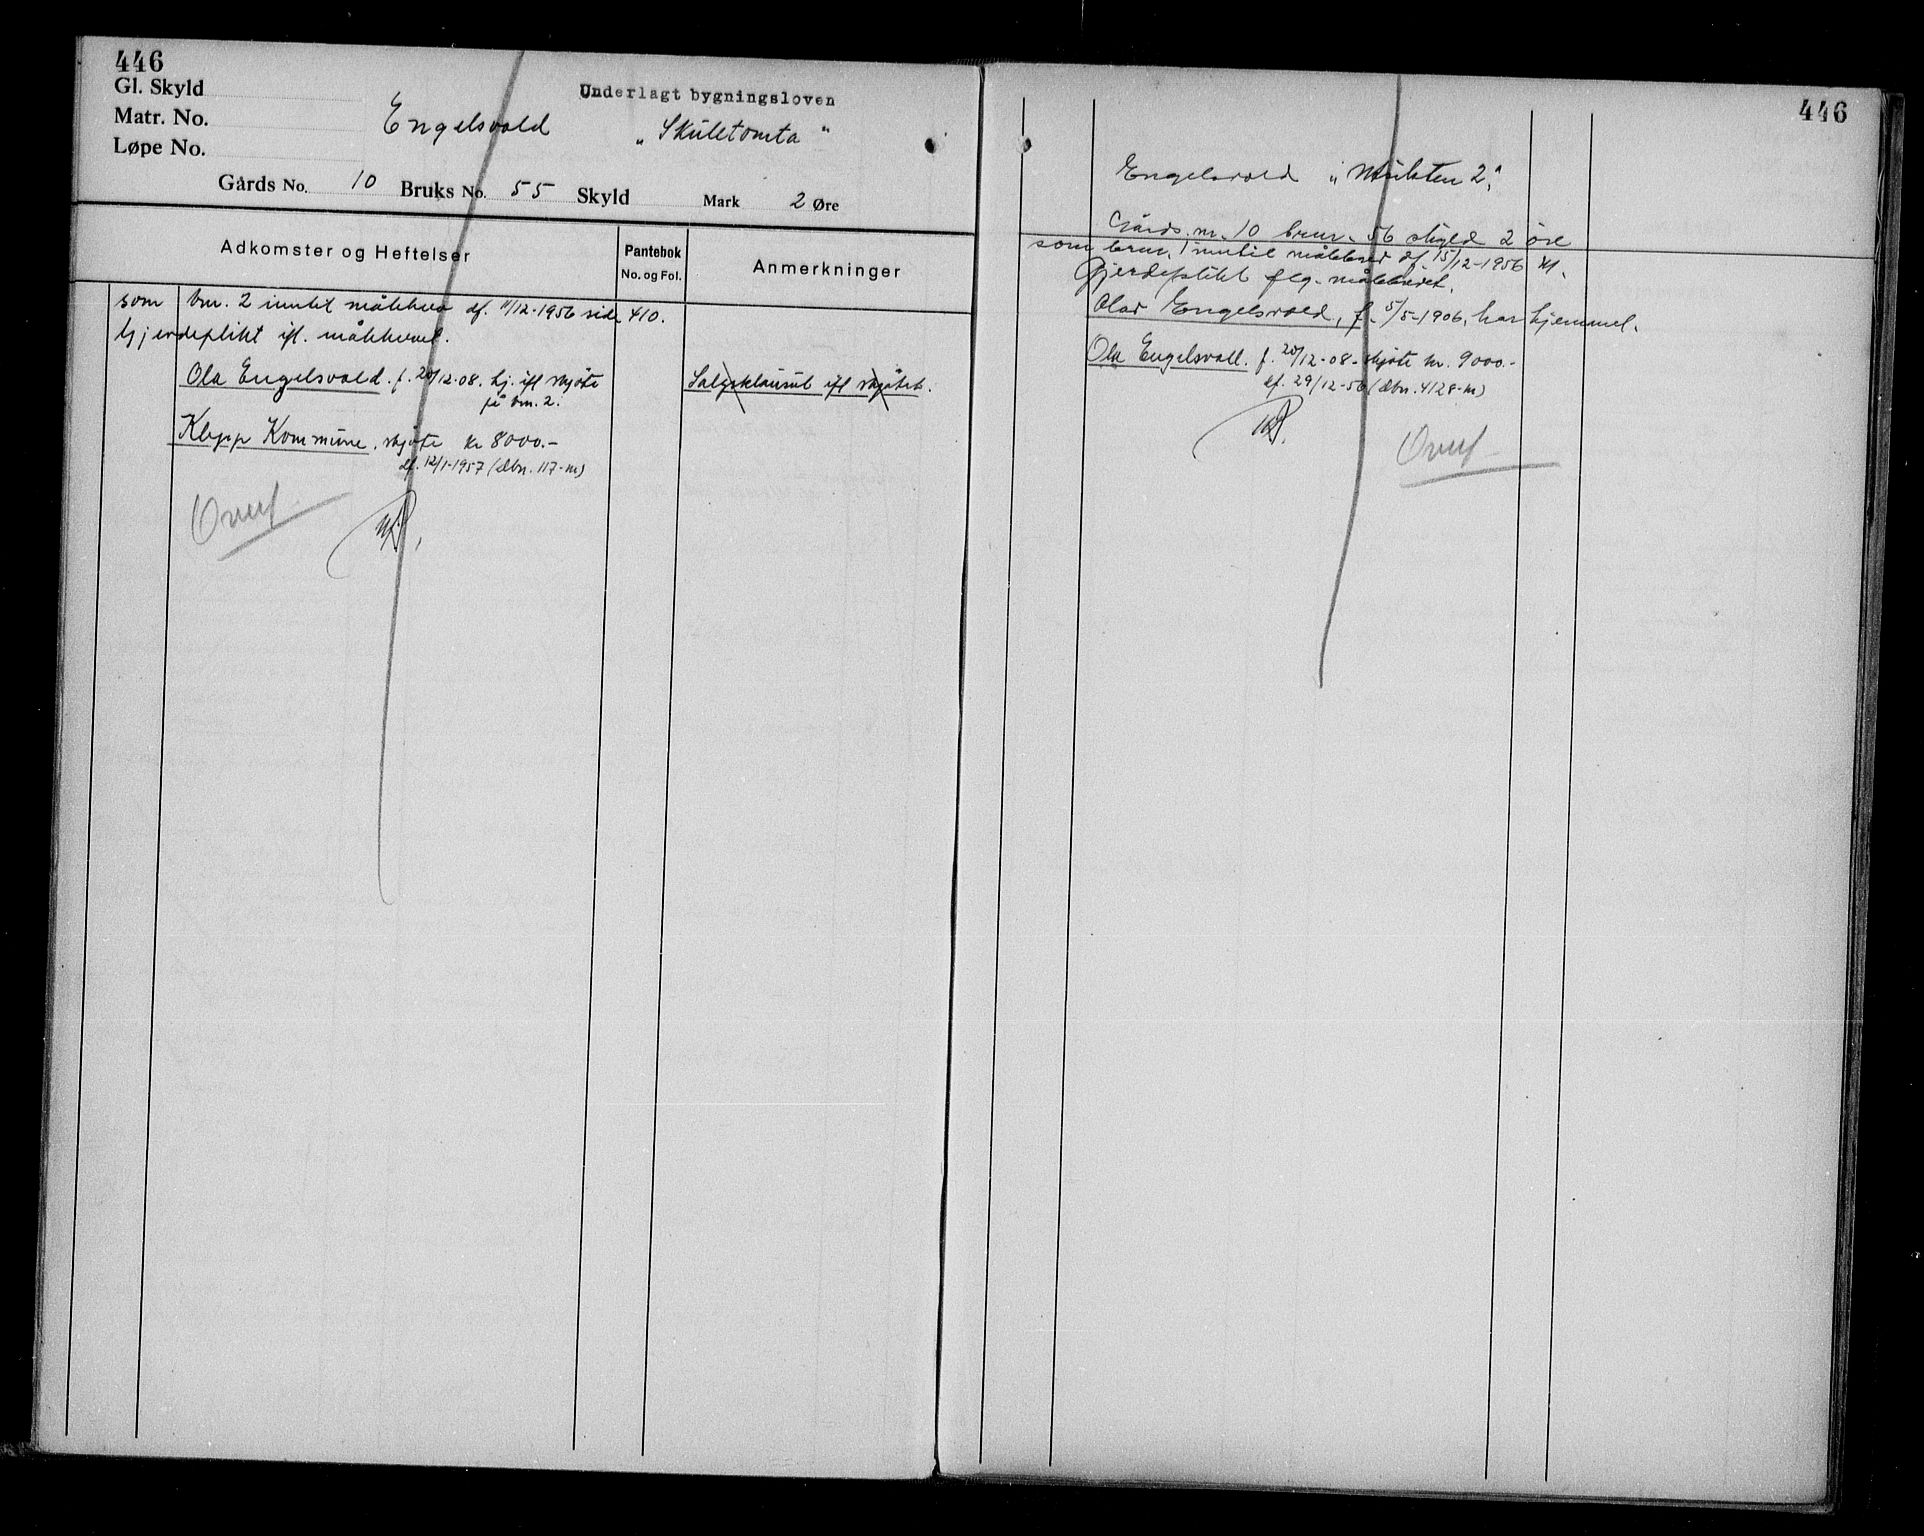 446
Gl. Skyld
Matr. No.
Løpe No.
Underlagt bygningsloven
Engelsvold „Skuletomta"
Gårds No. 10 Bruks No. 55 Skyld Mark 2 Øre
Adkomster og Heftelser
Pantebok
No. og Fol.
Anmerkninger
som bnr. 2 inntil målebrev df. 11/12-1956 side 410.
Gjerdeplikt ifl. målebrevet.
Ola Engelsvold. f. 20/12-08. hj. ifl skjøte
på bnr. 2.
Salgsklausul ifl skjøtet.
Klepp Kommune. skjøte kr 8000.-
df. 12/1-1957 (Dbn. 117-m)
Overf
446
Engelsvold 2"
Gårds.nr. 10 brnr. 56 skyld 2 øre
som brnr. 1 inntil målebrev df. 15/12-1956
Gjerdeplikt flg. målebrevet.
Olav Engelsvold, f. 5/5-1906, har hjemmel.
Ola Engelsvoll. f. 20/12-08- skjøte kr. 9000.-
df. 29/12-56 (Dbn. 4128-m)
Overf